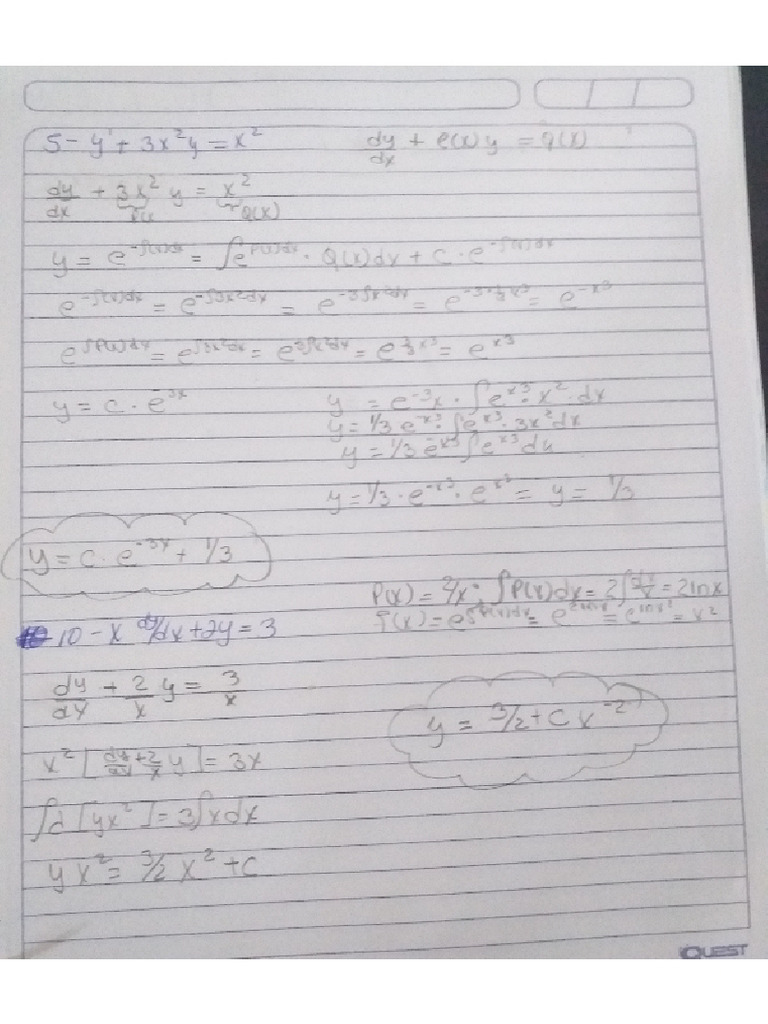 5 - y' + 3x²y = x²
dy/dx + P(x) y = Q(x)
dy/dx + 3x² y = x²
Q(x)
y = e^-∫P(x)dx = ∫e^∫P(x)dx · Q(x)dx + C · e^-∫P(x)dx
e^-∫P(x)dx = e^-∫3x²dx = e^-3∫x²dx = e^-3·⅓x³ = e^-x³
e^∫P(x)dx = e^∫3x²dx = e^3∫x²dx = e^3/3x³ = e^x³
y = C · e^-3x
y = e^-3x · ∫e^x³ · x² · dx
y = 1/3 e^-x³ · ∫e^x³ · 3x²dx
y = 1/3 e^-x³ ∫e^x³ du
y = 1/3 · e^-x³ · e^x³ = y = 1/3
y = C · e^-3x + 1/3
P(x) = 2/x; ∫P(x)dx = 2∫dx/x = 2lnx
10 - x dy/dx + 2y = 3
(x) = e^∫P(x)dx = e^2lnx = e^lnx² = x²
dy/dx + 2/x y = 3/x
y = 3/2 + C x^-2
x² [dy/dx + 2/x y] = 3x
∫d [yx²] = 3∫xdx
y x² = 3/2 x² + C
QUEST